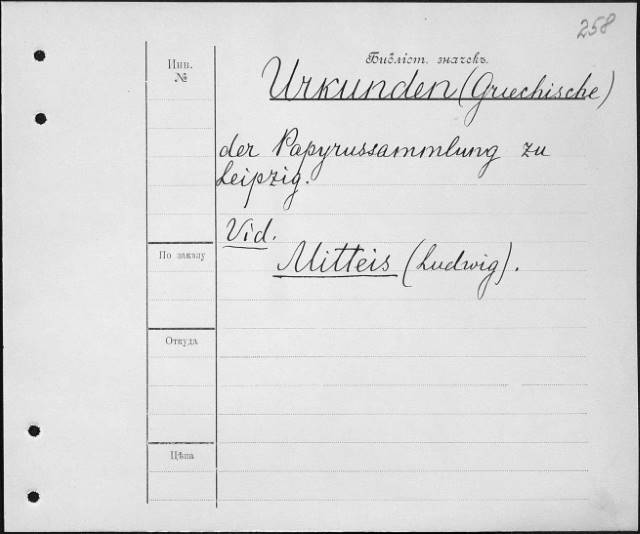 258
Инв.
№
Библіот. значекъ.
Urkunden (Griechische)
der Papyrussammlung zu
Leipzig.
Vid.
По заказу
Mitteis (Ludwig).
Откуда
Цѣна